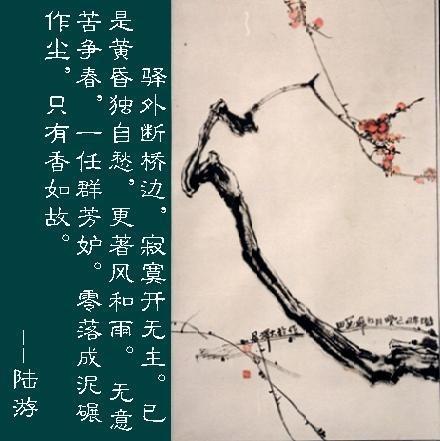 驿外断桥边，寂寞开无主。已
是黄昏独自愁，更著风和雨。 无意
苦争春，一任群芳妒。零落成泥碾
作尘，只有香如故。
——陆游